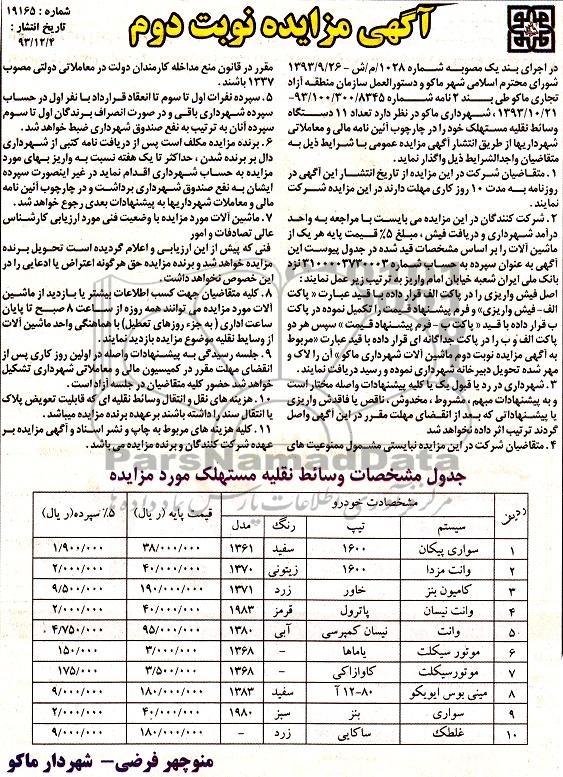 آگهی مزایده نوبت دوم
شماره : ۱۹۱۶۵
تاریخ انتشار :
۹۳/۱۲/۴
در اجرای بند یک مصوبه شماره ۱۰۲۸/م/ش - ۱۳۹۳/۹/۲۶
شورای محترم اسلامی شهر ماکو و دستورالعمل سازمان منطقه آزاد
تجاری ماکو طی بند ۲ نامه شماره ۹۳/۱۰۰/۳۰۰/۸۳۴۵-
۱۳۹۳/۱۰/۲۱ ، شهرداری ماکو در نظر دارد تعداد ۱۱ دستگاه
وسائط نقلیه مستهلک خود را در چارچوب آئین نامه مالی و معاملاتی
شهرداریها از طریق انتشار آگهی مزایده عمومی با شرایط ذیل به
متقاضیان واجدالشرایط ذیل واگذار نماید.
۱. متقاضیان شرکت در این مزایده از تاریخ انتشار این آگهی در
روزنامه به مدت ۱۰ روز کاری مهلت دارند در این مزایده شرکت
نمایند.
۲. شرکت کنندگان در این مزایده می بایست با مراجعه به واحد
درآمد شهرداری و دریافت فیش ، مبلغ ۵٪ قیمت پایه هر یک از
ماشین آلات را بر اساس مشخصات قید شده در جدول پیوست این
آگهی به عنوان سپرده به حساب شماره ۳۱۰۰۰۰۲۷۳۰۰۰۳ نزد
بانک ملی ایران شعبه خیابان امام واریز به ترتیب زیر عمل نمایند:
اصل فیش واریزی را در پاکت الف قرار داده با قید عبارت « پاکت
الف- فیش واریزی» و فرم پیشنهاد قیمت را تکمیل نموده در پاکت
ب قرار داده با قید « پاکت ب - فرم پیشنهاد قیمت » سپس هر دو
پاکت الف و ب را در پاکت جداگانه ای قرار داده با قید عبارت «مربوط
به آگهی مزایده نوبت دوم ماشین آلات شهرداری ماکو» آن را لاک و
مهر شده تحویل دبیرخانه شهرداری نموده و رسید دریافت نمایند.
۳. شهرداری در رد یا قبول یک یا کلیه پیشنهادات واصله مختار است
و به پیشنهادات مبهم ، مشروط ، مخدوش ، ناقص یا فاقدش واریزی
یا پیشنهاداتی که بعد از انقضای مهلت مقرر در این آگهی واصل
گردند ترتیب اثر داده نخواهد شد
۴. متقاضیان شرکت در این مزایده نبایستی مشمول ممنوعیت های
مقرر در قانون منع مداخله کارمندان دولت در معاملاتی دولتی مصوب
۱۳۳۷ باشند.
۵. سپرده نفرات اول تا سوم تا انعقاد قرارداد با نفر اول در حساب
سپرده شهرداری باقی و در صورت انصراف برندگان اول تا سوم
سپرده آنان به ترتیب به نفع صندوق شهرداری ضبط خواهد شد.
۶. برنده مزایده مکلف است پس از دریافت نامه کتبی از شهرداری
دال بر برنده شدن ، حداکثر تا یک هفته نسبت به واریز بهای مورد
مزایده به حساب شهرداری اقدام نماید در غیر اینصورت سپرده
ایشان به نفع صندوق شهرداری برداشت و در چارچوب آئین نامه
مالی و معاملات شهرداریها به پیشنهادات بعدی رجوع خواهد شد.
۷. ماشین آلات مورد مزایده با وضعیت فنی مورد ارزیابی کارشناس
عالی تصادفات و امور
فنی که پیش از این ارزیابی و اعلام گردیده است تحویل برنده
مزایده خواهد شد و برنده مزایده حق هرگونه اعتراض یا ادعایی را در
این خصوص نخواهد داشت.
۸. کلیه متقاضیان جهت کسب اطلاعات بیشتر یا بازدید از ماشین
آلات مورد مزایده می توانند همه روزه از ساعت ۸ صبح تا پایان
ساعت اداری ( به جزء روزهای تعطیل) با هماهنگی واحد ماشین آلات
از وسایط نقلیه موضوع مزایده بازدید نمایند.
۹. جلسه رسیدگی به پیشنهادات واصله در اولین روز کاری پس از
انقضای مهلت مقرر در کمیسیون مالی و معاملاتی شهرداری تشکیل
خواهد شد حضور کلیه متقاضیان در جلسه آزاد است.
۱۰. هزینه های نقل و انتقال وسائط نقلیه ای که قابلیت تعویض پلاک
یا انتقال سند را داشته باشند برعهده برنده مزایده میباشد.
۱۱. کلیه هزینه های مربوط به چاپ و نشر اسناد و آگهی مزایده بر
عهده شرکت کنندگان و برنده مزایده می باشد.
ParsNamadData
جدول مشخصات وسائط نقلیه مستهلک مورد مزایده
ردیف مشخصات خودرو قیمت پایه (ر یال) ۵٪ سپرده( ر یال)
سیستم تیپ رنگ مدل
۱ سواری پیکان ۱۶۰۰ سفید ۱۳۶۱ ۳۸/۰۰۰/۰۰۰ ۱/۹۰۰/۰۰۰
۲ وانت مزدا ۱۶۰۰ زیتونی ۱۳۷۰ ۴۰/۰۰۰/۰۰۰ ۲/۰۰۰/۰۰۰
۳ کامیون بنز خاور زرد ۱۳۷۱ ۱۹۰/۰۰۰/۰۰۰ ۹/۵۰۰/۰۰۰
۴ وانت نیسان پاترول قرمز ۱۹۸۳ ۴۰/۰۰۰/۰۰۰ ۲/۰۰۰/۰۰۰
۵ وانت نیسان کمپرسی آبی ۱۳۸۰ ۹۵/۰۰۰/۰۰۰ ۴/۷۵۰/۰۰۰
۶ موتور سیکلت یاماها - ۱۳۶۸ ۳/۰۰۰/۰۰۰ ۱۵۰/۰۰۰
۷ موتورسیکلت کاوازاکی - ۱۳۶۸ ۳/۵۰۰/۰۰۰ ۱۷۵/۰۰۰
۸ مینی بوس ایویکو ۸۰-۱۲ آ سفید ۱۳۸۳ ۱۸۰/۰۰۰/۰۰۰ ۹/۰۰۰/۰۰۰
۹ سواری بنز سبز ۱۹۸۰ ۴۰/۰۰۰/۰۰۰ ۲/۰۰۰/۰۰۰
۱۰ غلطک ساکایی زرد - ۱۸۰/۰۰۰/۰۰۰ ۹/۰۰۰/۰۰۰
منوچهر فرضی- شهردار ماکو